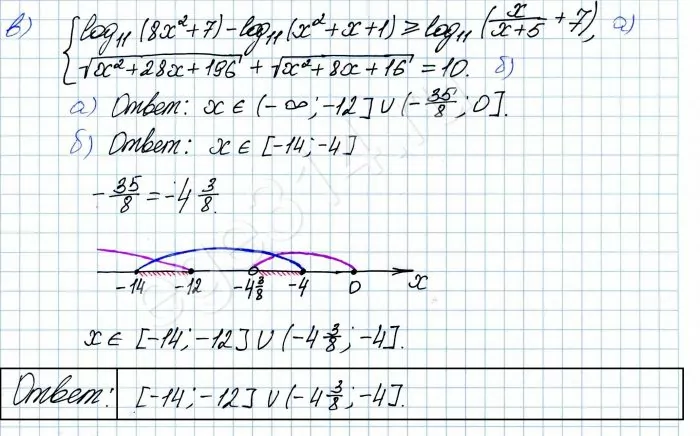 в) { log₁₁(8x²+7) - log₁₁(x²+x+1) ≥ log₁₁(x/(x+5) + 7), а)
√(x²+28x+196) + √(x²+8x+16) = 10. б)
а) Ответ: x ∈ (-∞; -12] ∪ (-35/8; 0].
б) Ответ: x ∈ [-14; -4]
-35/8 = -4 3/8.
-14 -12 -4 3/8 -4 0 x
x ∈ [-14; -12] ∪ (-4 3/8; -4].
Ответ: [-14; -12] ∪ (-4 3/8; -4].